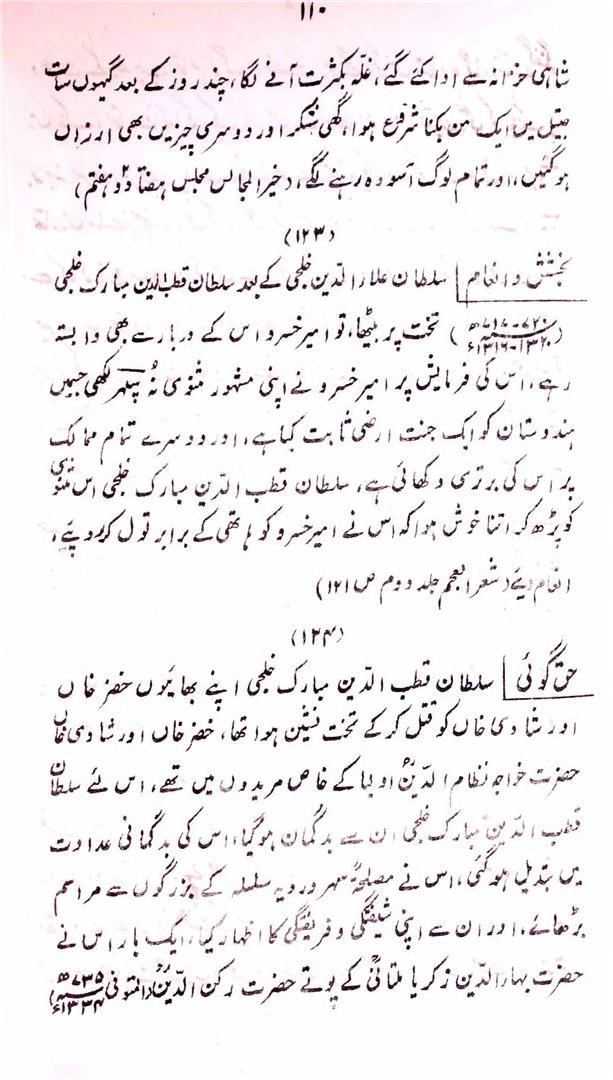 ۱۱۰
شاہی خزانہ سے ادا کئے گئے، غلّہ بکثرت آنے لگا، چند روز کے بعد گیہوں سات
جیتل میں ایک من بکنا شروع ہوا، گھی شکر اور دوسری چیزیں بھی ارزاں
ہوگئیں، اور تمام لوگ آسودہ رہنے لگے، (خیرالمجالس مجلس ہفتاد و ہفتم)
(۱۲۳)
بخشش و انعام | سلطان علاء الدّین خلجی کے بعد سلطان قطب الدین مبارک خلجی
(۷۱۷-۷۲۰ھ ۱۳۱۶-۱۳۲۰ء) تخت پر بیٹھا، تو امیر خسرو اس کے دربار سے بھی وابستہ
رہے، اس کی فرمایش پر امیر خسرو نے اپنی مشہور مثنوی نُہ سپہر لکھی جسمیں
ہندوستان کو ایک جنت ارضی ثابت کیا ہے، اور دوسرے تمام ممالک
پر اس کی برتری دکھائی ہے، سلطان قطب الدّین مبارک خلجی اس مثنوی
کو پڑھ کر اتنا خوش ہوا کہ اس نے امیر خسرو کو ہاتھی کے برابر تول کر روپئے،
انعام دیئے (شعر العجم جلد دوم ص ۱۲۱)
(۱۲۴)
حق گوئی | سلطان قطب الدّین مبارک خلجی اپنے بھائیوں خضر خاں
اور شادی خاں کو قتل کر کے تخت نشین ہوا تھا، خضر خاں اور شادی خاں
حضرت خواجہ نظام الدّینؒ اولیا کے خاص مریدوں میں تھے، اس لئے سلطان
قطب الدّین مبارک خلجی ان سے بدگُمان ہوگیا، اس کی بدگمانی عداوت
میں تبدیل ہوگئی، اس نے مصلحۃً سہروردیہ سلسلہ کے بزرگوں سے مراسم
بڑھائے، اور ان سے اپنی شیفتگی و فریفتگی کا اظہار کیا، ایک بار اس نے
حضرت بہاء الدّین زکریا ملتانیؒ کے پوتے حضرت رکن الدّینؒ (المتوفی ۷۳۵ھ ۱۳۳۴ء)